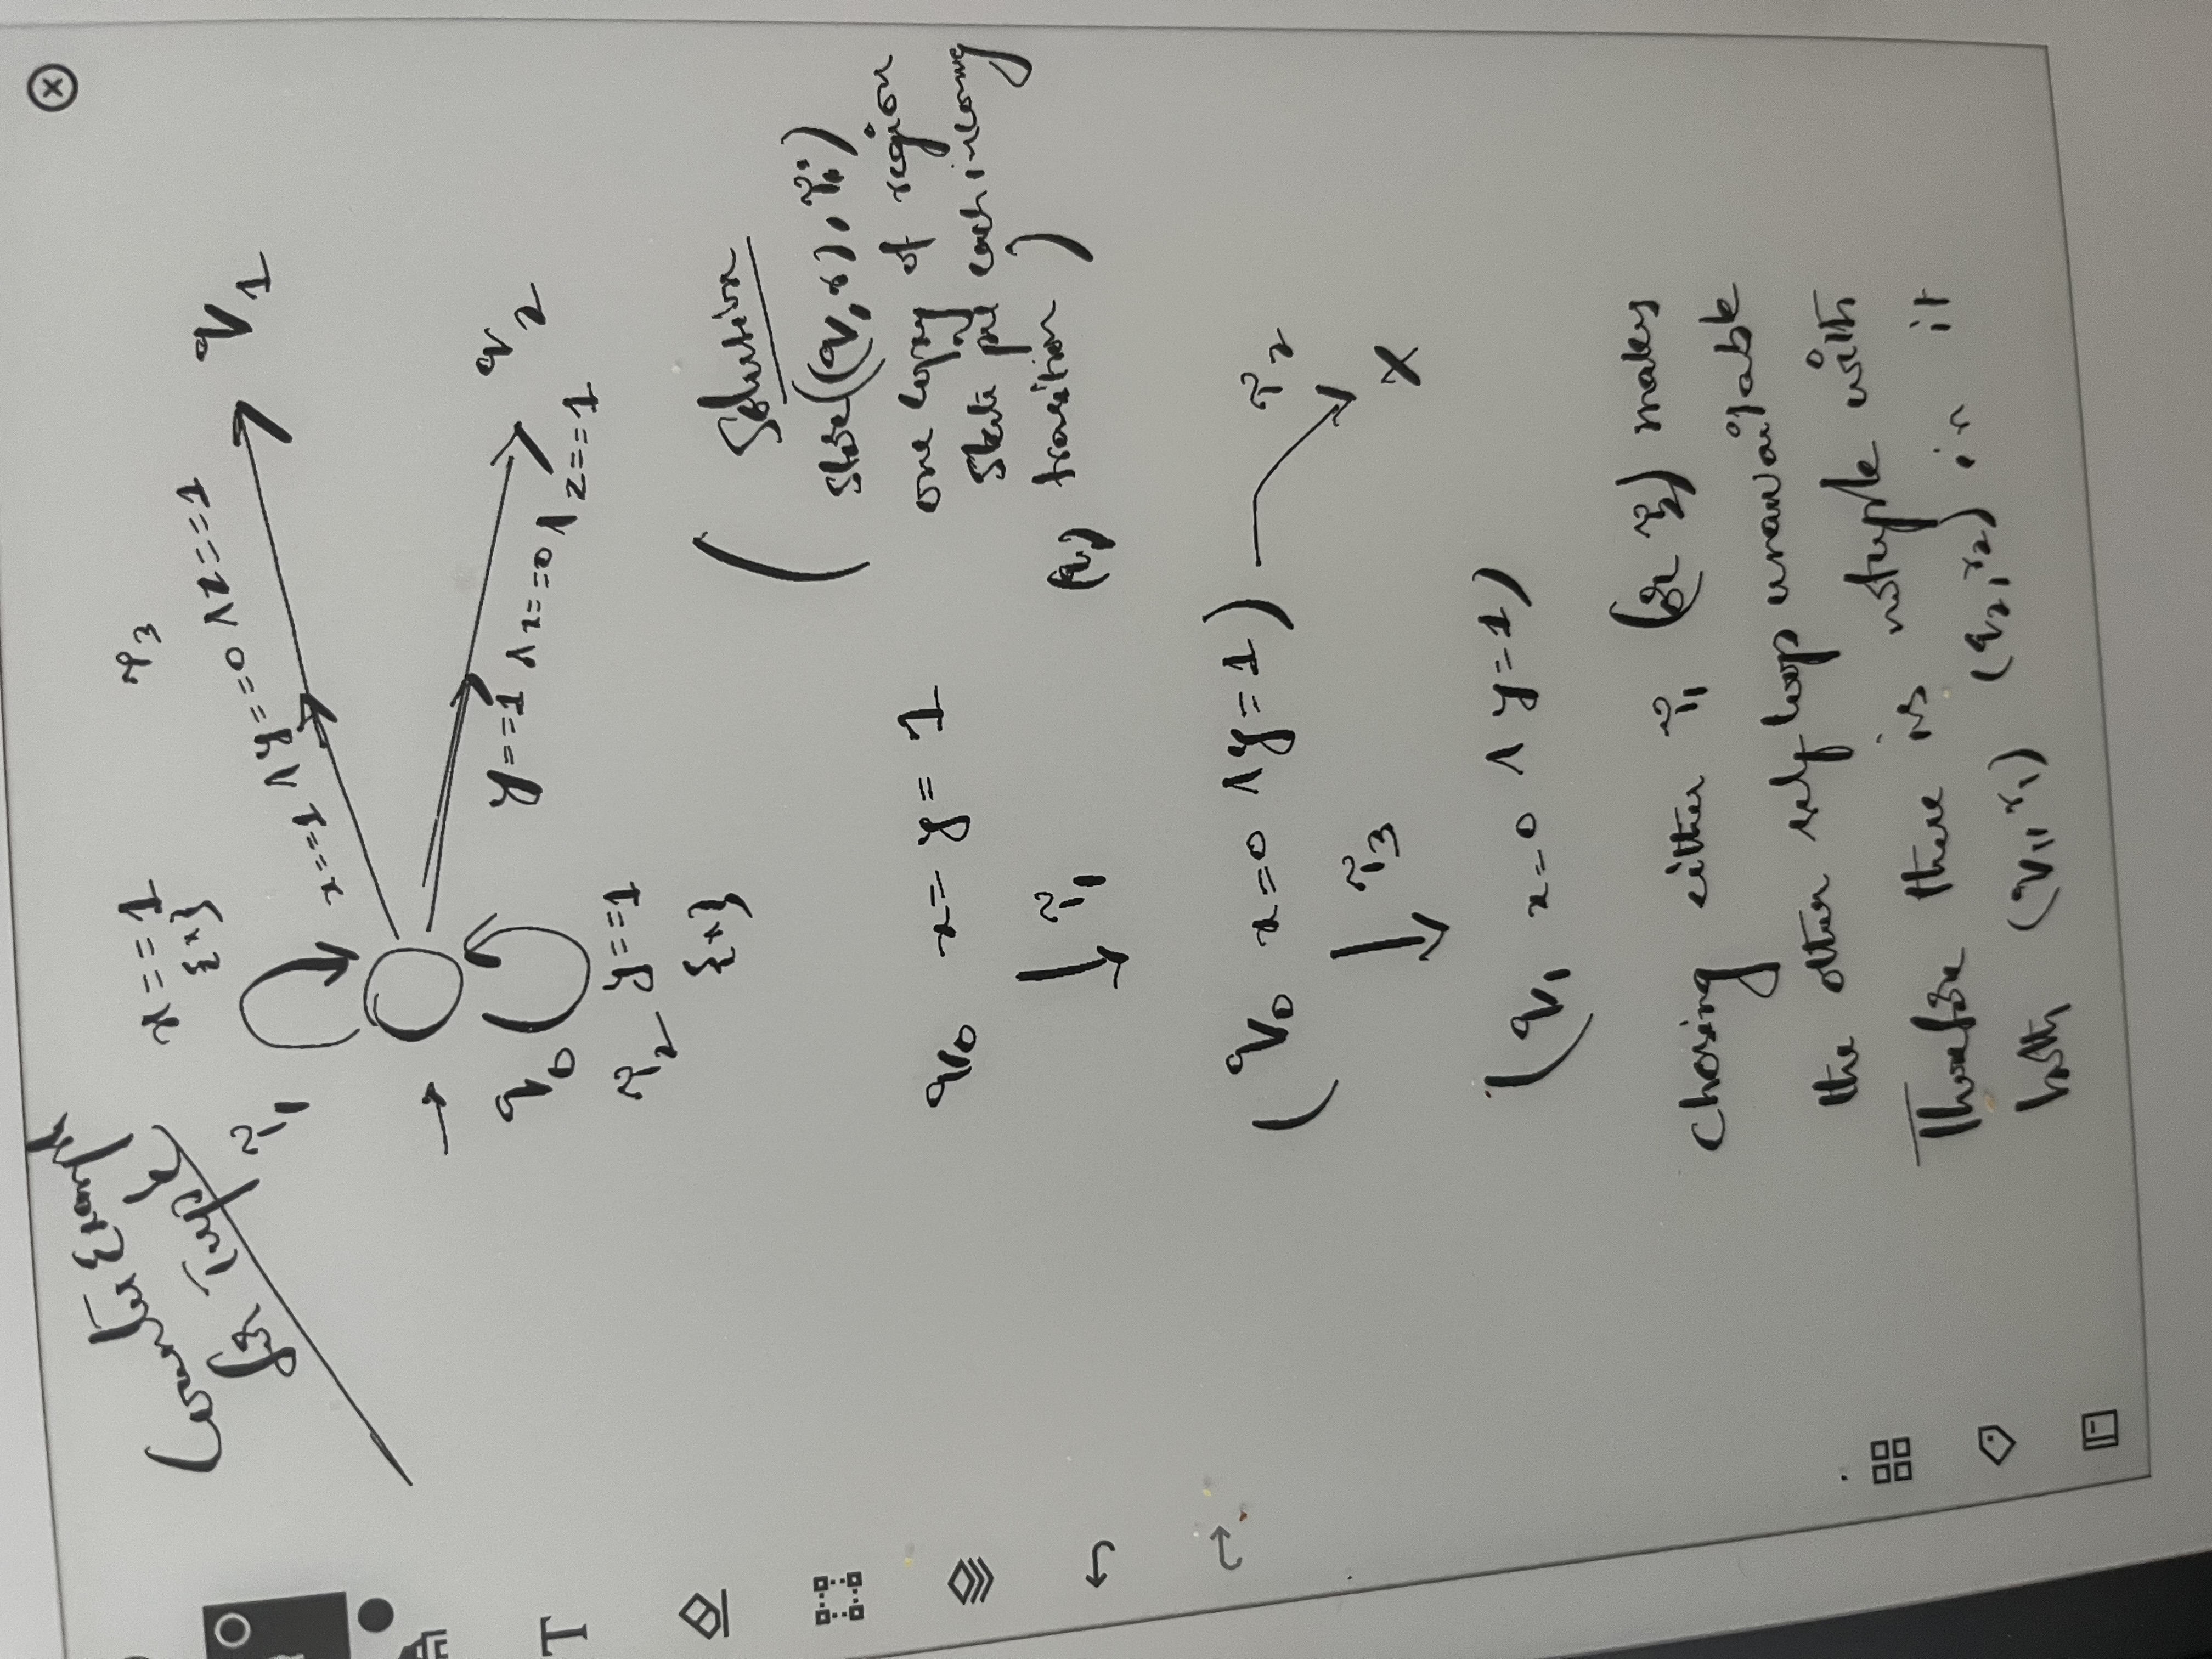 Counter Example
for Tuple
x==1
{x}
τ1
τ3
x==1 ∧ y==0 ∧ z==1
q1
q0
y==1 ∧ x==0 ∧ z==1
q2
τ2 y==1
{x}
( Solution
store((q, r), τi)
one copy of region
state per each incoming
(q) transition )
q0 x= y= 1
τ1
(q0 x=0 ∧ y=1)
τ2
X
τ3
(q1 x=0 ∧ y=1)
Chosing either τ1 (or τ2) makes
the other self loop unavailable
Therefore there is notuple with
both (q1, r1) (q2, r2) in it
T